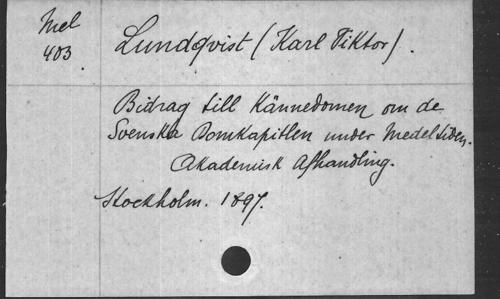 Mel
403
Lundqvist (Karl Viktor).
Bidrag till Kännedomen om de
Svenska Domkapitlen under Medeltiden.
Akademisk Afhandling.
Stockholm. 1897.